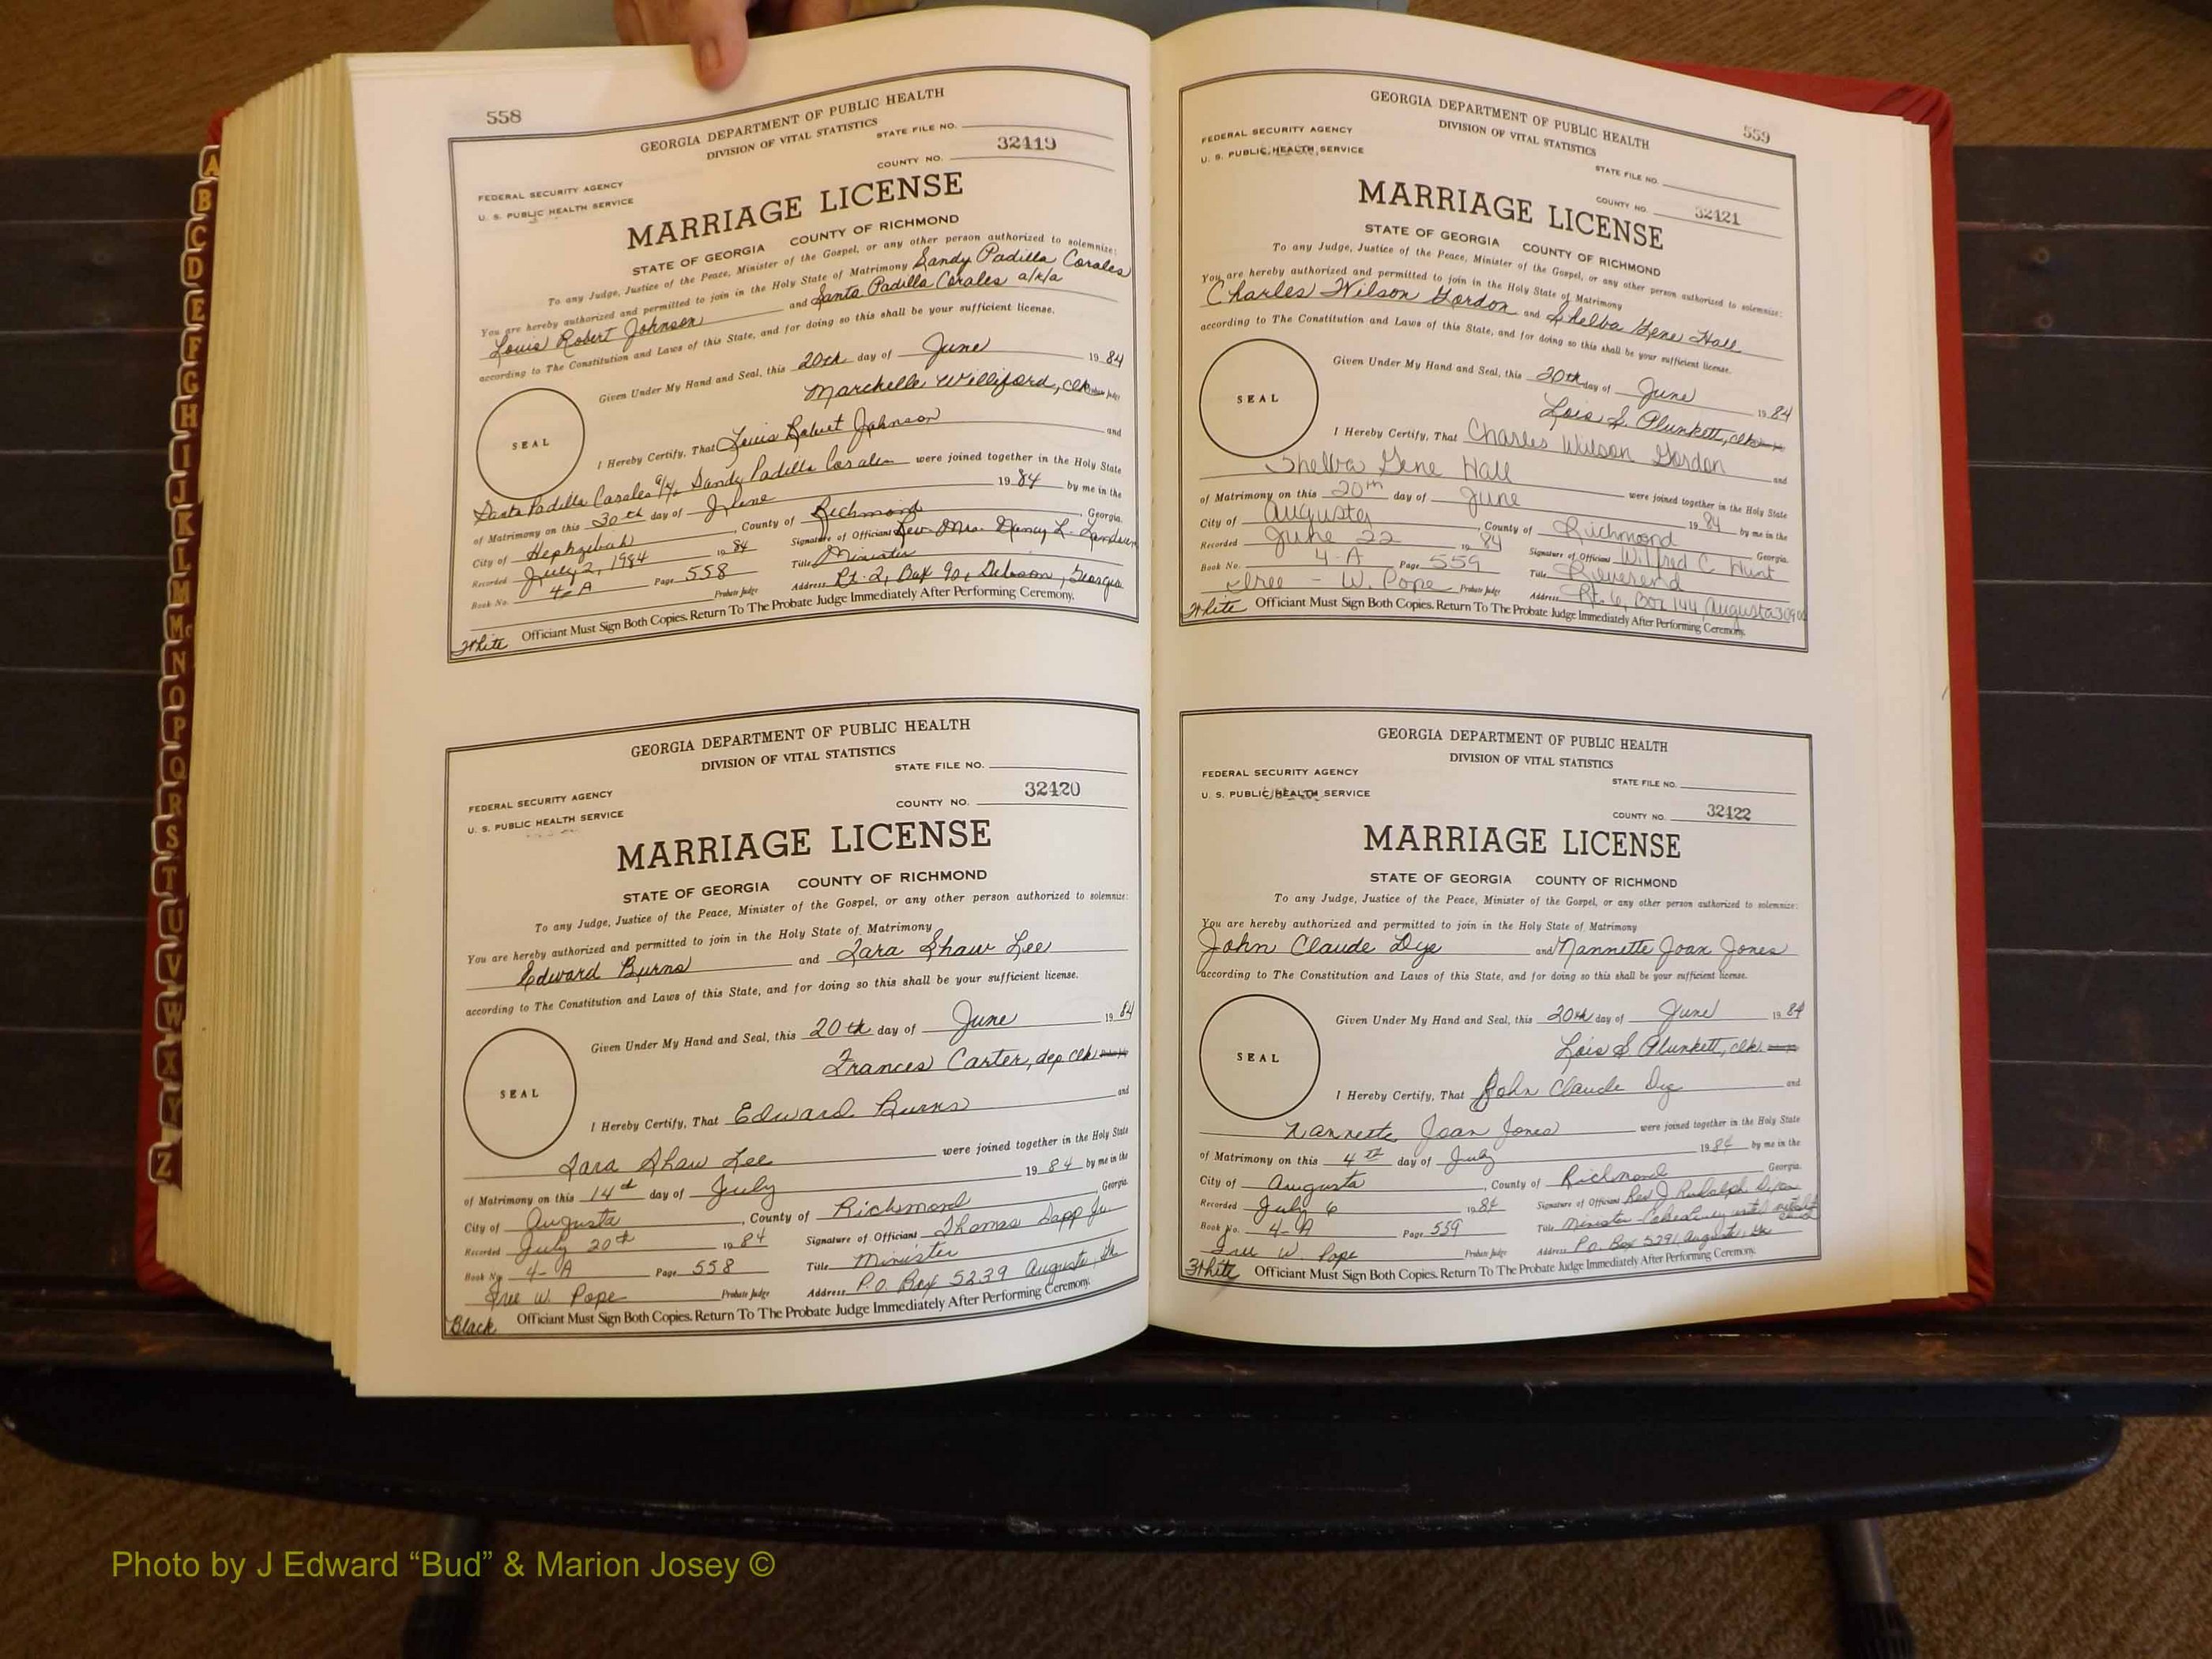 558
GEORGIA DEPARTMENT OF PUBLIC HEALTH
DIVISION OF VITAL STATISTICS
STATE FILE NO.
32419
COUNTY NO.
FEDERAL SECURITY AGENCY
U. S. PUBLIC HEALTH SERVICE
MARRIAGE LICENSE
STATE OF GEORGIA COUNTY OF RICHMOND
To any Judge, Justice of the Peace, Minister of the Gospel, or any other person authorized to solemnize:
You are hereby authorized and permitted to join in the Holy State of Matrimony Sandy Padilla Corales
Louis Robert Johnson and Santa Padilla Corales a/k/a
according to The Constitution and Laws of this State, and for doing so this shall be your sufficient license.
Given Under My Hand and Seal, this 20th day of June 1984
Marchelle Williford, clk
SEAL
I Hereby Certify, That Louis Robert Johnson and
Santa Padilla Corales a/k/a Sandy Padilla Corales were joined together in the Holy State
of Matrimony on this 30th day of June 1984 by me in the
City of Hephzibah, County of Richmond, Georgia.
Recorded July 2, 1984 1984 Signature of Officiant Rev. Mrs. Nancy L.
Book No. 4-A Page 558 Title Minister
Probate Judge Address Rt. 2, Box 90, Georgia
Officiant Must Sign Both Copies. Return To The Probate Judge Immediately After Performing Ceremony.
White
GEORGIA DEPARTMENT OF PUBLIC HEALTH
DIVISION OF VITAL STATISTICS
STATE FILE NO.
32420
COUNTY NO.
FEDERAL SECURITY AGENCY
U. S. PUBLIC HEALTH SERVICE
MARRIAGE LICENSE
STATE OF GEORGIA COUNTY OF RICHMOND
To any Judge, Justice of the Peace, Minister of the Gospel, or any other person authorized to solemnize:
You are hereby authorized and permitted to join in the Holy State of Matrimony
Edward Burns and Zara Shaw Lee
according to The Constitution and Laws of this State, and for doing so this shall be your sufficient license.
Given Under My Hand and Seal, this 20th day of June 1984
Frances Carter, dep clk
SEAL
I Hereby Certify, That Edward Burns and
Zara Shaw Lee were joined together in the Holy State
of Matrimony on this 14th day of July 1984 by me in the
City of Augusta, County of Richmond, Georgia.
Recorded July 20th 1984 Signature of Officiant Thomas Sapp Jr.
Book No. 4-A Page 558 Title Minister
Free W. Pope Probate Judge Address P.O. Box 5239 Augusta, Ga
Officiant Must Sign Both Copies. Return To The Probate Judge Immediately After Performing Ceremony.
Black
559
GEORGIA DEPARTMENT OF PUBLIC HEALTH
DIVISION OF VITAL STATISTICS
FEDERAL SECURITY AGENCY
U. S. PUBLIC HEALTH SERVICE
STATE FILE NO.
COUNTY NO. 32421
MARRIAGE LICENSE
STATE OF GEORGIA COUNTY OF RICHMOND
To any Judge, Justice of the Peace, Minister of the Gospel, or any other person authorized to solemnize:
You are hereby authorized and permitted to join in the Holy State of Matrimony
Charles Wilson Gordon and Shelba Gene Hall
according to The Constitution and Laws of this State, and for doing so this shall be your sufficient license.
Given Under My Hand and Seal, this 20th day of June 1984
Lois S. Plunkett, clk
SEAL
I Hereby Certify, That Charles Wilson Gordon
Shelba Gene Hall and
were joined together in the Holy State
of Matrimony on this 20th day of June 1984 by me in the
City of Augusta, County of Richmond Georgia.
Recorded June 22 1984 Signature of Officiant Wilfred C Hunt
Book No. 4-A Page 559 Title Reverend
Free - W. Pope Probate Judge Address Rt. 6, Box 144 Augusta
White Officiant Must Sign Both Copies. Return To The Probate Judge Immediately After Performing Ceremony.
GEORGIA DEPARTMENT OF PUBLIC HEALTH
DIVISION OF VITAL STATISTICS
FEDERAL SECURITY AGENCY
U. S. PUBLIC HEALTH SERVICE
STATE FILE NO.
COUNTY NO. 32422
MARRIAGE LICENSE
STATE OF GEORGIA COUNTY OF RICHMOND
To any Judge, Justice of the Peace, Minister of the Gospel, or any other person authorized to solemnize:
You are hereby authorized and permitted to join in the Holy State of Matrimony
John Claude Dye and Nannette Joan Jones
according to The Constitution and Laws of this State, and for doing so this shall be your sufficient license.
Given Under My Hand and Seal, this 20th day of June 1984
Lois S Plunkett, clk
SEAL
I Hereby Certify, That John Claude Dye and
Nannette Joan Jones were joined together in the Holy State
of Matrimony on this 4th day of July 1984 by me in the
City of Augusta, County of Richmond Georgia.
Recorded July 6 1984 Signature of Officiant Rev J Rudolph
Book No. 4-A Page 559 Title Minister
Free W. Pope Probate Judge Address P.O. Box 5291 Augusta, Ga
White Officiant Must Sign Both Copies. Return To The Probate Judge Immediately After Performing Ceremony.
A
B
C
D
E
F
G
H
I
J
K
L
M
Mc
N
O
P
Q
R
S
T
U
V
W
X
Y
Z
Photo by J Edward “Bud” & Marion Josey ©